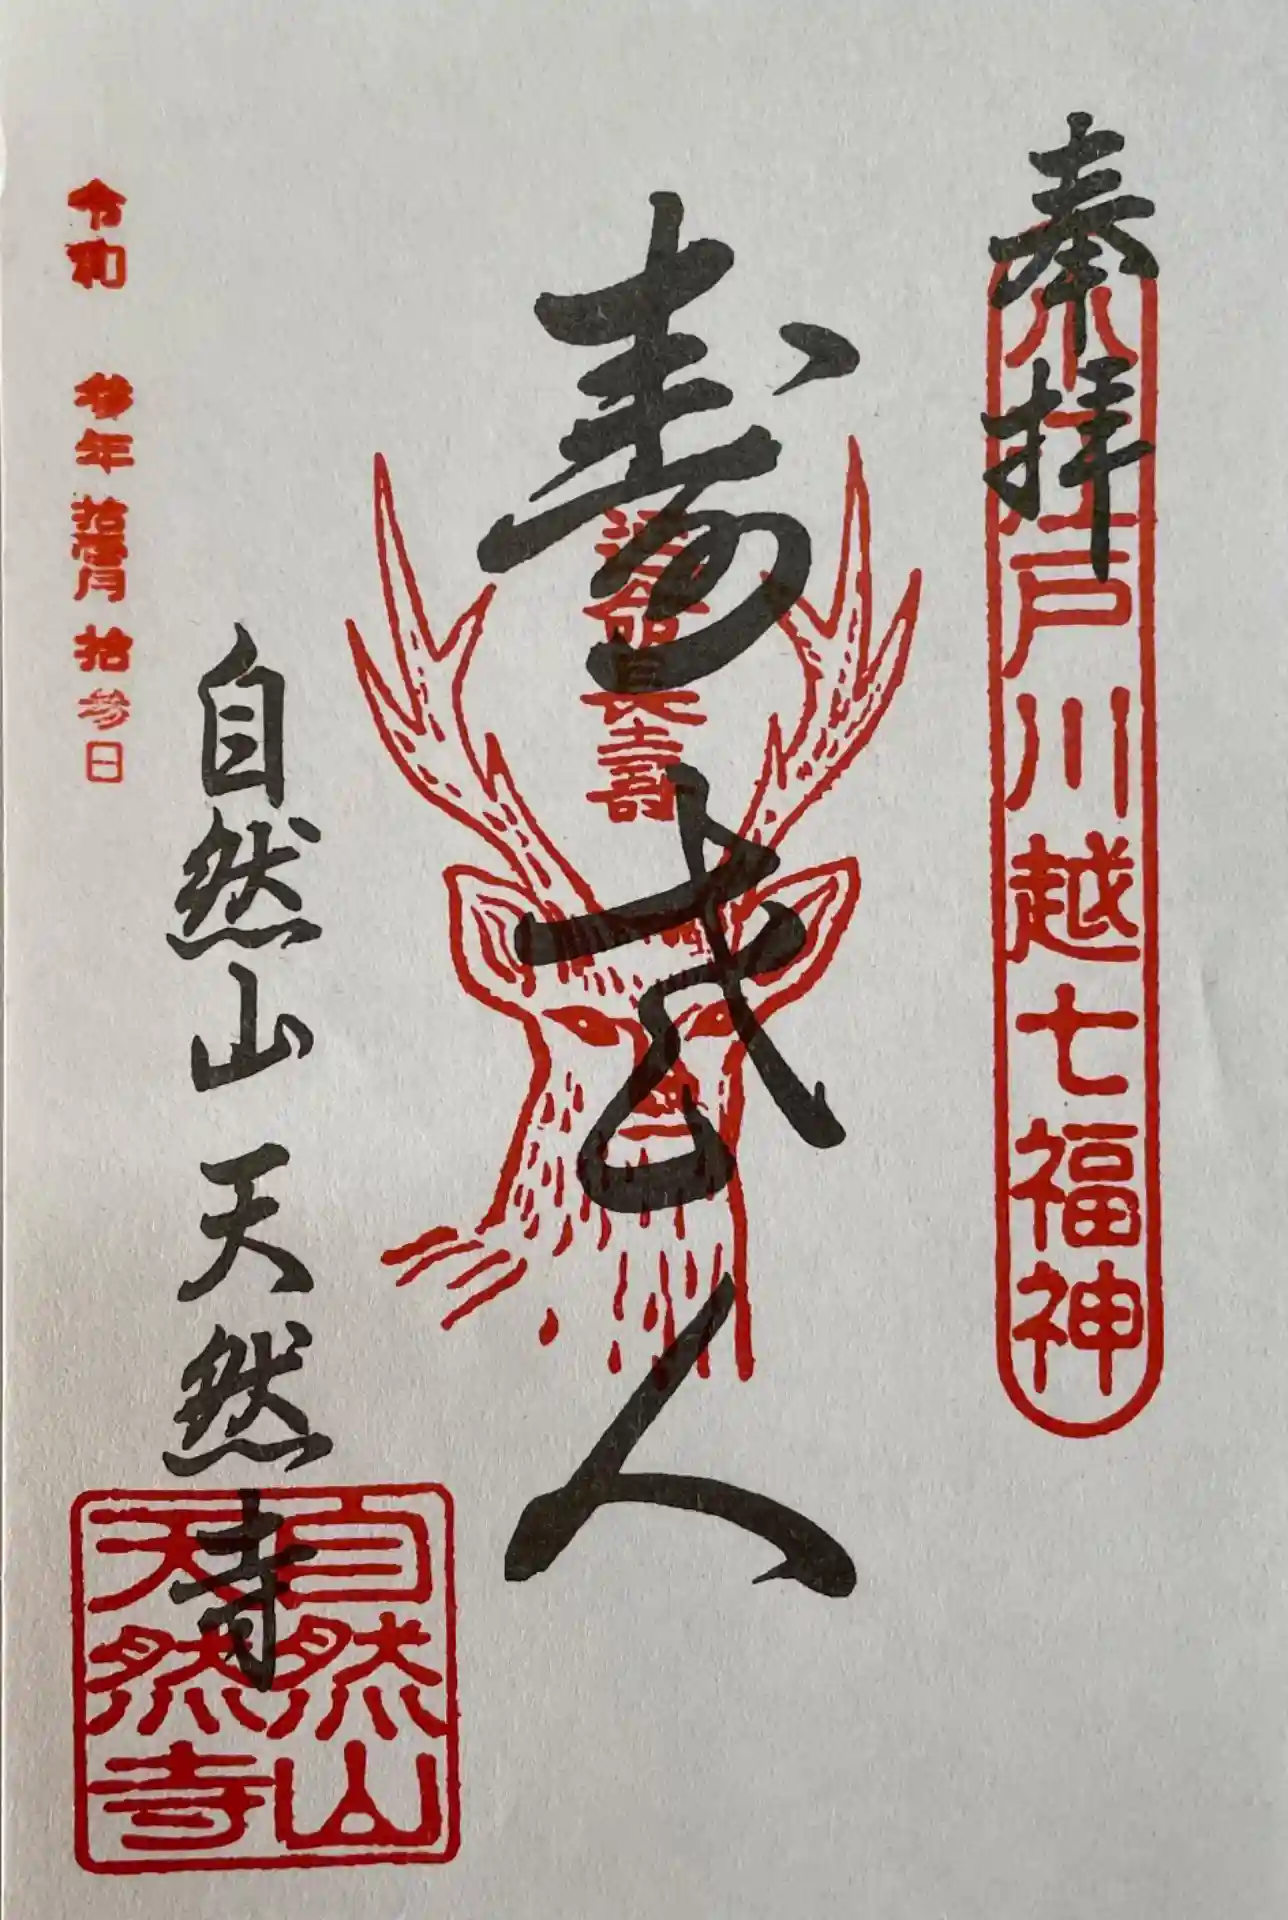 奉拝
小江戸川越七福神
寿老人
延命長壽
自然山 天然寺
自然山
天然寺
令和 参年 拾壹月 拾参日